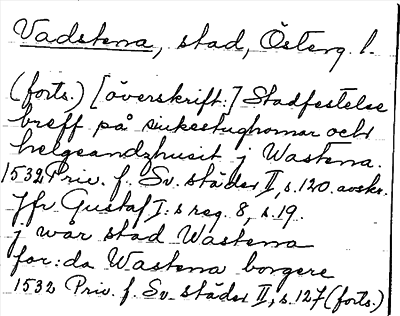 Vadstena, stad, Österg. l.
(forts.) [överskrift:] Stadfestelse
breff på siukestughonar och
helgeandzhusit j Wastena.
1532 Priv. f. Sv. städer II, s. 120. avskr.
Jfr Gustaf I:s reg. 8, s. 19.
j wår stad Wastena
for:da Wastena borgere
1532 Priv. f. Sv. städer II, s. 127 (forts.)